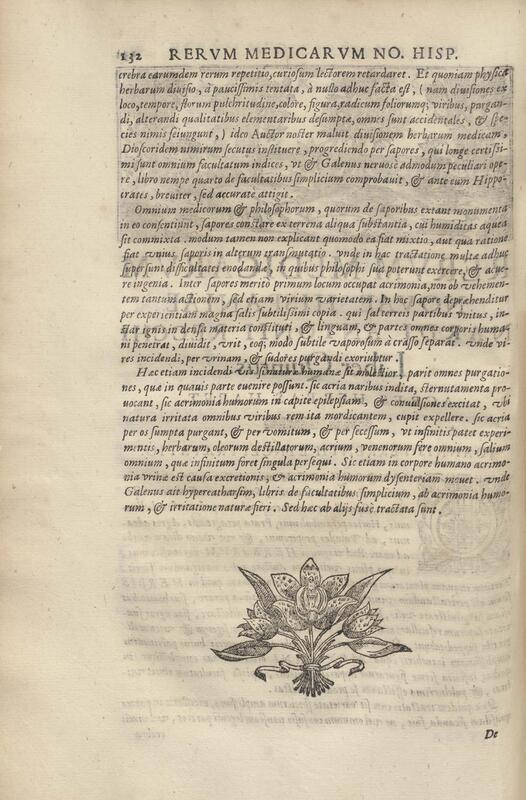 132 RERVM MEDICARVM NO. HISP.
crebra earumdem rerum repetitio, curiosum lectorem retardaret. Et quoniam physica
herbarum diuisio, à paucissimis tentata, à nullo adhuc facta est, (nam diuisiones ex
loco, tempore, florum pulchritudine, colore, figura, radicum foliorumq; viribus, purgan-
di, alterandi qualitatibus elementaribus desumptæ, omnes sunt accidentales, & spe-
cies nimis seiungunt,) ideo Auctor noster maluit diuisionem herbarum medicam,
Dioscoridem nimirum secutus instituere, progrediendo per sapores, qui longe certissi-
mi sunt omnium facultatum indices, vt & Galenus neruose admodum peculiari ope-
re, libro nempe quarto de facultatibus simplicium comprobauit, & ante eum Hippo-
crates, breuiter, sed accurate attigit.
Omnium medicorum & philosophorum, quorum de saporibus extant monumenta
in eo consentiunt, sapores constare ex terrena aliqua substantia, cui humiditas aquea
sit commixta. modum tamen non explicant quomodo ea fiat mixtio, aut qua ratione
fiat vnius saporis in alterum transmutatio. vnde in hac tractatione multæ adhuc
supersunt difficultates enodandæ, in quibus philosophi sua poterunt exercere, & acue-
re ingenia. Inter sapores merito primum locum occupat acrimonia, non ob vehemen-
tem tantum actionem, sed etiam virium varietatem. In hoc sapore depræhenditur
per experientiam magna salis subtilissimi copia. qui sal terreis partibus vnitus, in-
star ignis in densa materia constituti, & linguam, & partes omnes corporis huma-
ni penetrat, diuidit, vrit, eoq; modo subtile vaporosum à crasso separat. vnde vi-
res incidendi, per vrinam, & sudores purgandi exoriuntur.
Hæc etiam incidendi vis naturæ humanæ sit molestior. parit omnes purgatio-
nes, quæ in quauis parte euenire possunt. sic acria naribus indita, sternutamenta pro-
uocant, sic acrimonia humorum in capite epilepsiam, & conuulsiones excitat, vbi
natura irritata omnibus viribus rem ita mordicantem, cupit expellere. sic acria
per os sumpta purgant, & per vomitum, & per secessum, vt infinitis patet experi-
mentis, herbarum, oleorum destillatorum, acrium, venenorum fere omnium, salium
omnium, quæ infinitum foret singula persequi. Sic etiam in corpore humano acrimo-
nia vrinæ est causa excretionis, & acrimonia humorum dysenteriam mouet. vnde
Galenus ait hypercatharsim, libris de facultatibus simplicium, ab acrimonia humo-
rum, & irritatione naturæ fieri. Sed hæc ab alijs fuse tractata sunt.
De